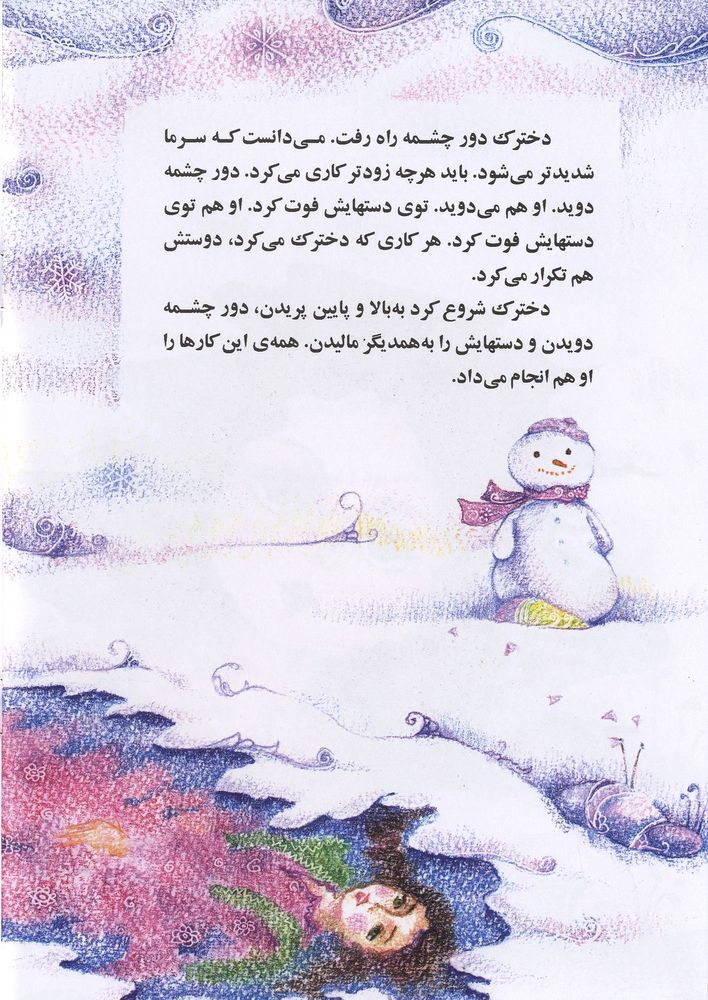 دخترك دور چشـمه راه رفت. مـی‌دانست کـه سـرما
شدیدتر می‌شود. باید هرچه زودتر کاری می‌کرد. دور چشمه
دوید. او هم می‌دوید. توی دستهایش فوت کرد. او هم توی
دستهایش فوت کرد. هر کاری که دخترك می‌کرد، دوستش
هم تکرار می‌کرد.
دخترك شروع کرد به‌بالا و پایین پریدن، دور چشـمه
دویدن و دستهایش را به‌همدیگر مالیدن. همه‌ی این کارها را
او هم انجام می‌داد.